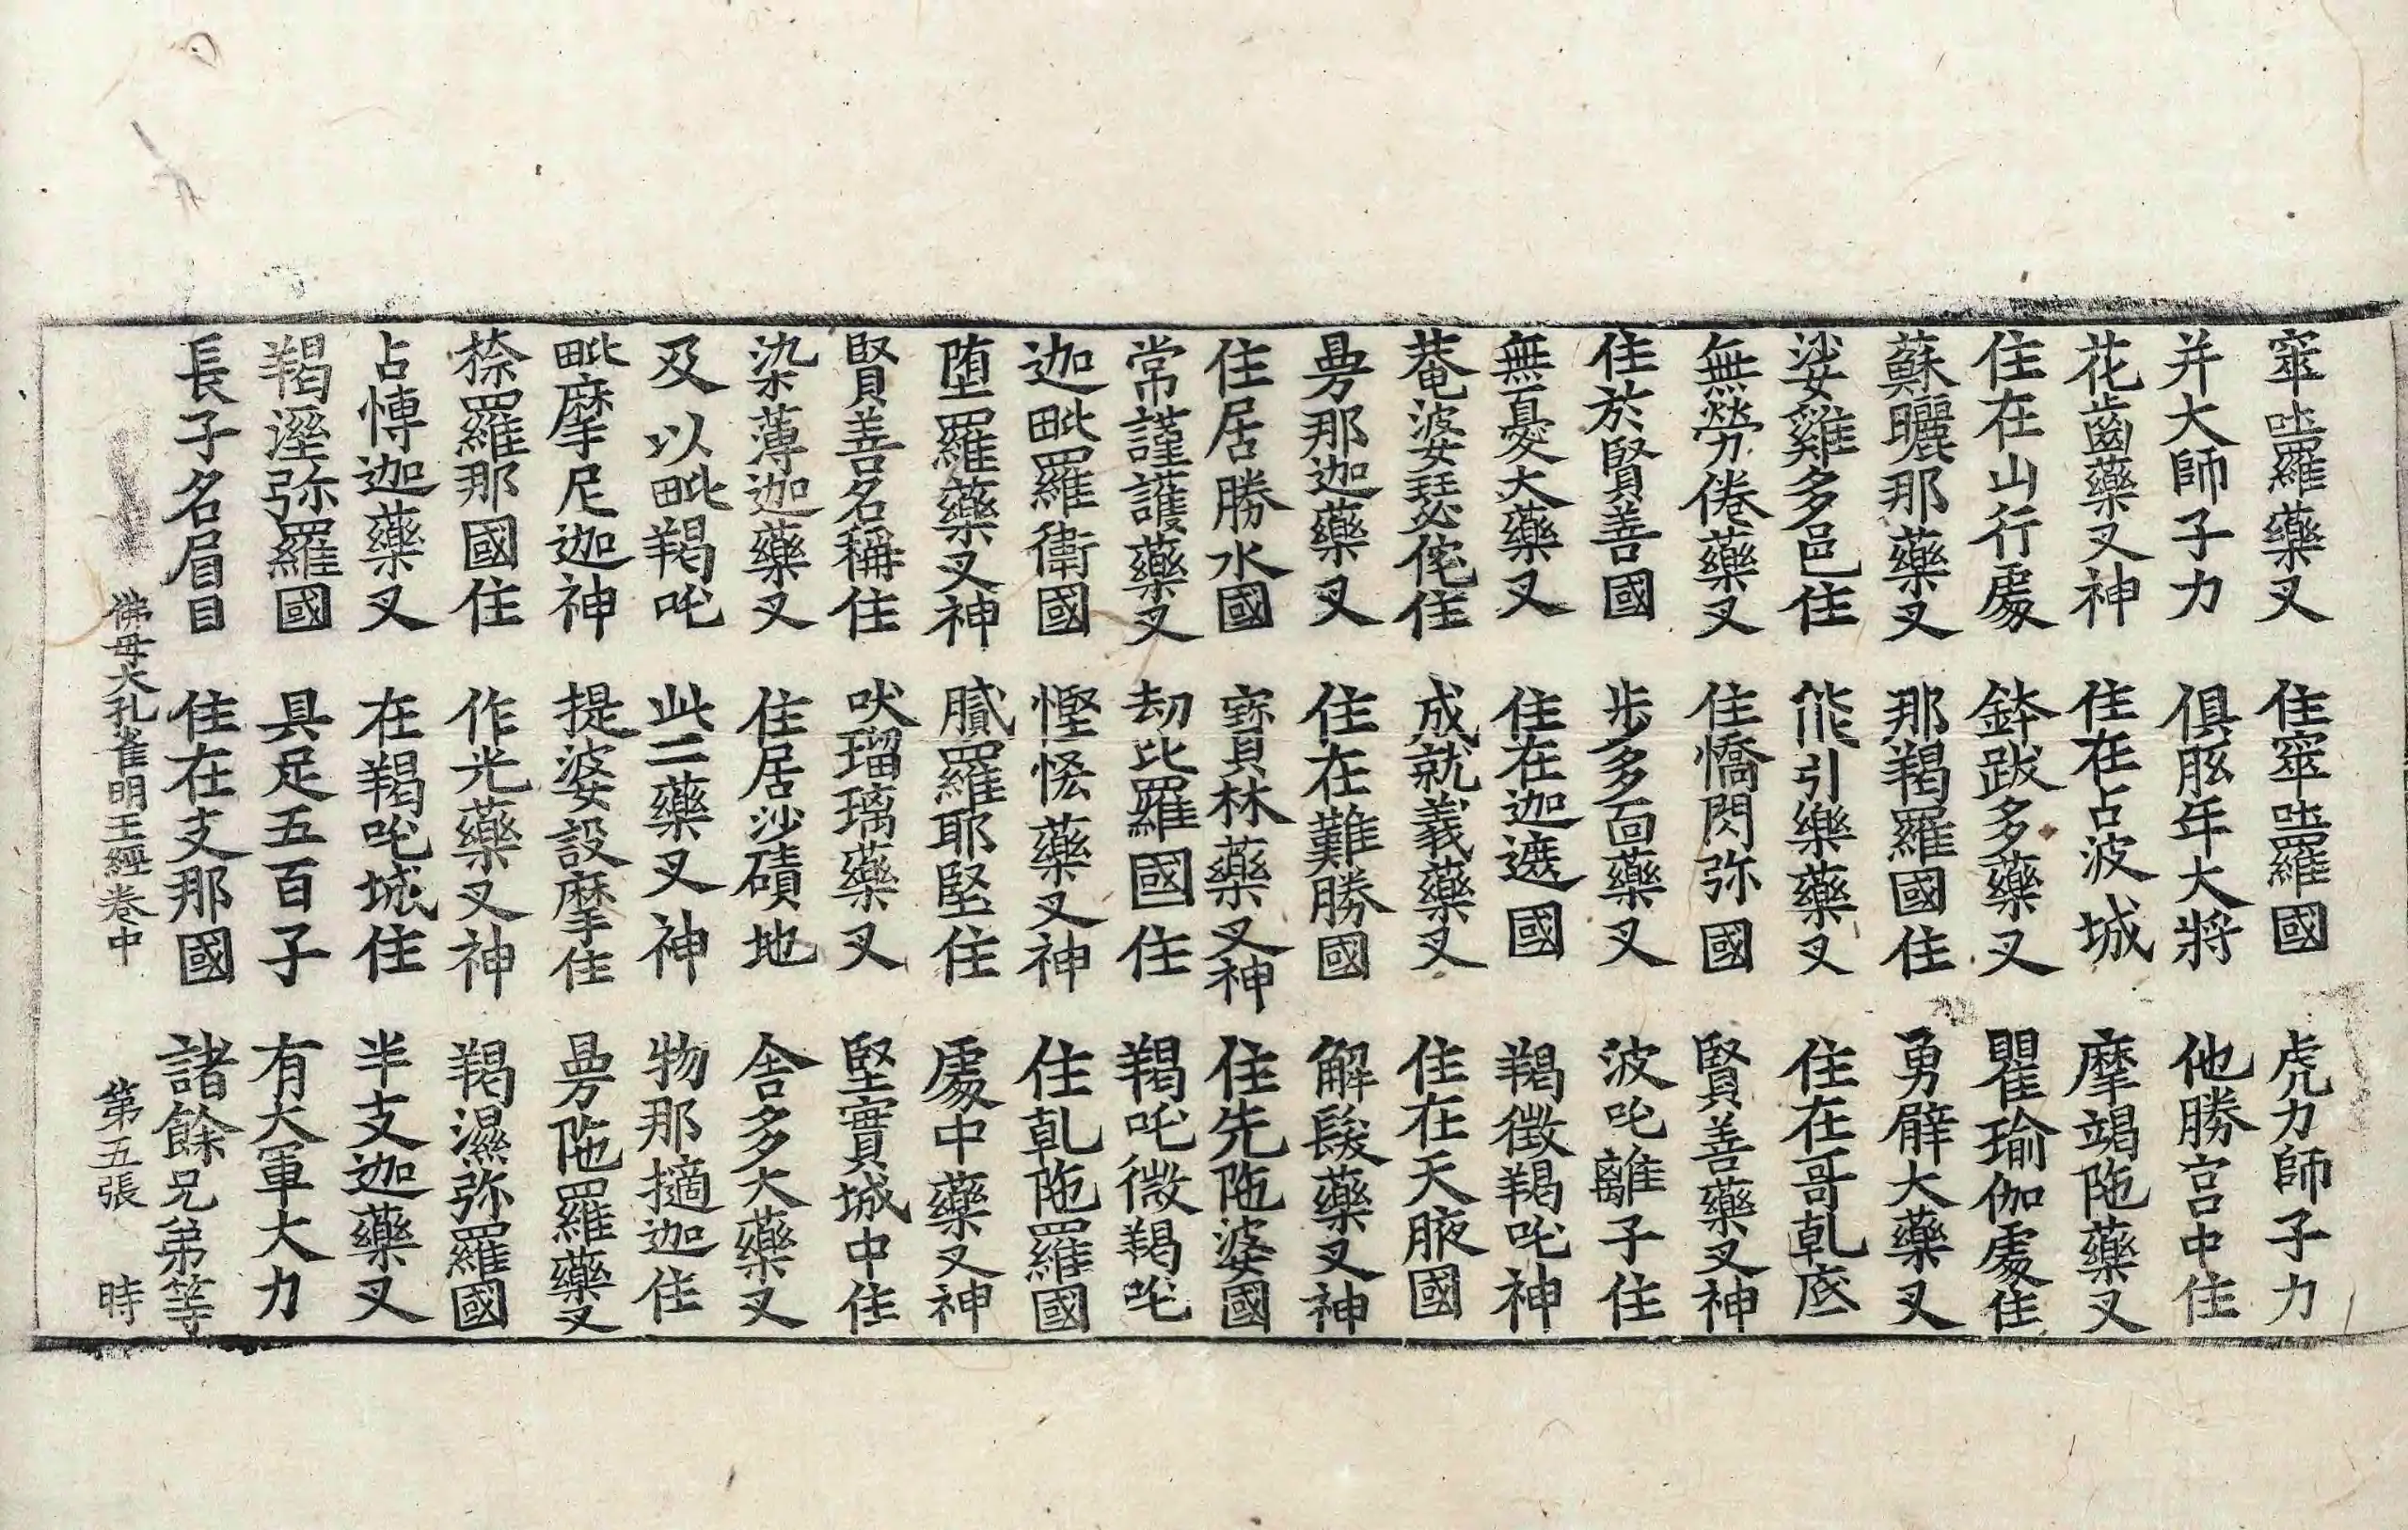 窣吐羅藥叉　住窣吐羅國　虎力師子力
并大師子力　俱胝年大將　他勝宮中住
花齒藥叉神　住在占波城　摩竭陁藥叉
住在山行處　鉢跋多藥叉　瞿瑜伽處住
蘇曬那藥叉　那羯羅國住　勇臂大藥叉
娑雞多邑住　能引樂藥叉　住在哥乹底
無勞倦藥叉　住憍閃弥國　賢善藥叉神
住於賢善國　步多面藥叉　波吒離子住
無憂大藥叉　住在迦遮國　羯徵羯吒神
菴婆瑟侘住　成就義藥叉　住在天腋國
曼那迦藥叉　住在難勝國　解髮藥叉神
住居勝水國　寶林藥叉神　住先陁婆國
常謹護藥叉　劫比羅國住　羯吒微羯吒
迦毗羅衛國　慳悋藥叉神　住乹陁羅國
墮羅藥叉神　膩羅耶堅住　處中藥叉神
賢善名稱住　吠瑠璃藥叉　堅實城中住
染薄迦藥叉　住居沙磧地　舍多大藥叉
及以毗羯吒　此二藥叉神　物那擿迦住
毗摩尼迦神　提婆設摩住　曼陁羅藥叉
捺羅那國住　作光藥叉神　羯濕弥羅國
占愽迦藥叉　在羯吒城住　半支迦藥叉
羯溼弥羅國　具足五百子　有大軍大力
長子名眉目　住在支那國　諸餘兄弟等
佛母大孔雀明王經卷中　第五張　時